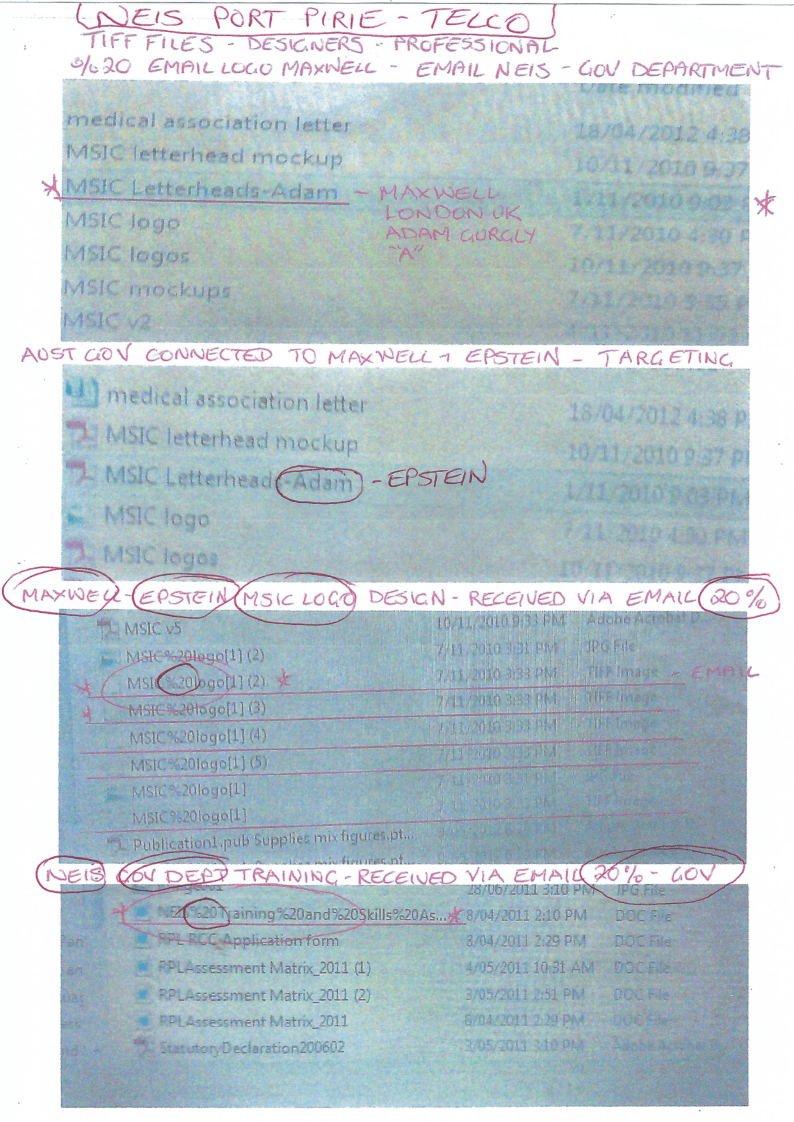 NEIS PORT PIRIE - TELCO
TIFF FILES - DESIGNERS - PROFESSIONAL
%20 EMAIL LOGO MAXWELL - EMAIL NEIS - GOV DEPARTMENT
Date modified
medical association letter 18/04/2012 4:38
MSIC letterhead mockup 10/11/2010 9:37
MSIC Letterheads-Adam - MAXWELL 1/11/2010 9:03
LONDON UK
MSIC logo ADAM GORGLY 7/11/2010 4:30 P
"A"
MSIC logos 10/11/2010 9:37
MSIC mockups 7/11/2010
MSIC v2
AUST GOV CONNECTED TO MAXWELL + EPSTEIN - TARGETING
medical association letter 18/04/2012 4:38 P
MSIC letterhead mockup 10/11/2010 9:37 P
MSIC Letterheads-Adam - EPSTEIN 1/11/2010 9:03 PM
MSIC logo 7/11/2010 4:30 PM
MSIC logos 10/11/2010 9:37 PM
MAXWELL - EPSTEIN MSIC LOGO DESIGN - RECEIVED VIA EMAIL 20%
MSIC v5 10/11/2010 9:33 PM Adobe Acrobat D...
MSIC%20logo[1] (2) 7/11/2010 3:31 PM JPG File
MSIC%20logo[1] (2) 7/11/2010 3:33 PM TIFF Image - EMAIL
MSIC%20logo[1] (3) 7/11/2010 3:33 PM TIFF Image
MSIC%20logo[1] (4) 7/11/2010 3:33 PM TIFF Image
MSIC%20logo[1] (5) 7/11/2010 TIFF Image
MSIC%20logo[1] 7/11/2010 JPG File
MSIC%20logo[1] 7/11/2010 TIFF Image
Publication1.pub Supplies mix figures.pt...
mix figures.pt...
NEIS GOV DEPT TRAINING - RECEIVED VIA EMAIL 20% - GOV
28/06/2011 3:10 PM JPG File
NEIS%20Training%20and%20Skills%20As... 8/04/2011 2:10 PM DOC File
RPL RCC Application form 8/04/2011 2:29 PM DOC File
RPLAssessment Matrix_2011 (1) 4/05/2011 10:31 AM DOC File
RPLAssessment Matrix_2011 (2) 3/05/2011 2:51 PM DOC File
RPLAssessment Matrix_2011 8/04/2011 2:29 PM DOC File
StatutoryDeclaration200602 3/05/2011 3:10 PM Adobe Acrobat D...